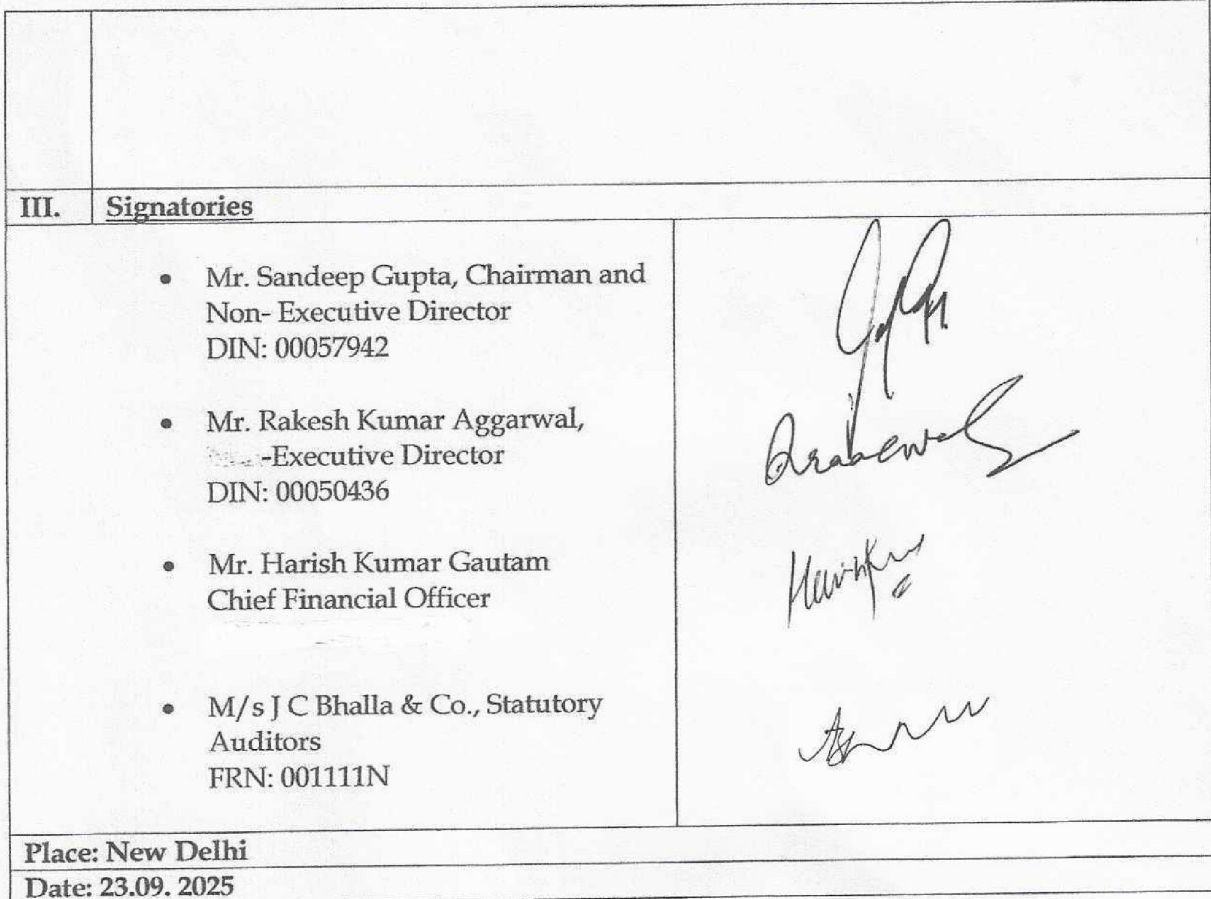 III. Signatories
• Mr. Sandeep Gupta, Chairman and
Non- Executive Director
DIN: 00057942
• Mr. Rakesh Kumar Aggarwal,
-Executive Director
DIN: 00050436
• Mr. Harish Kumar Gautam
Chief Financial Officer
• M/s J C Bhalla & Co., Statutory
Auditors
FRN: 001111N
Place: New Delhi
Date: 23.09. 2025